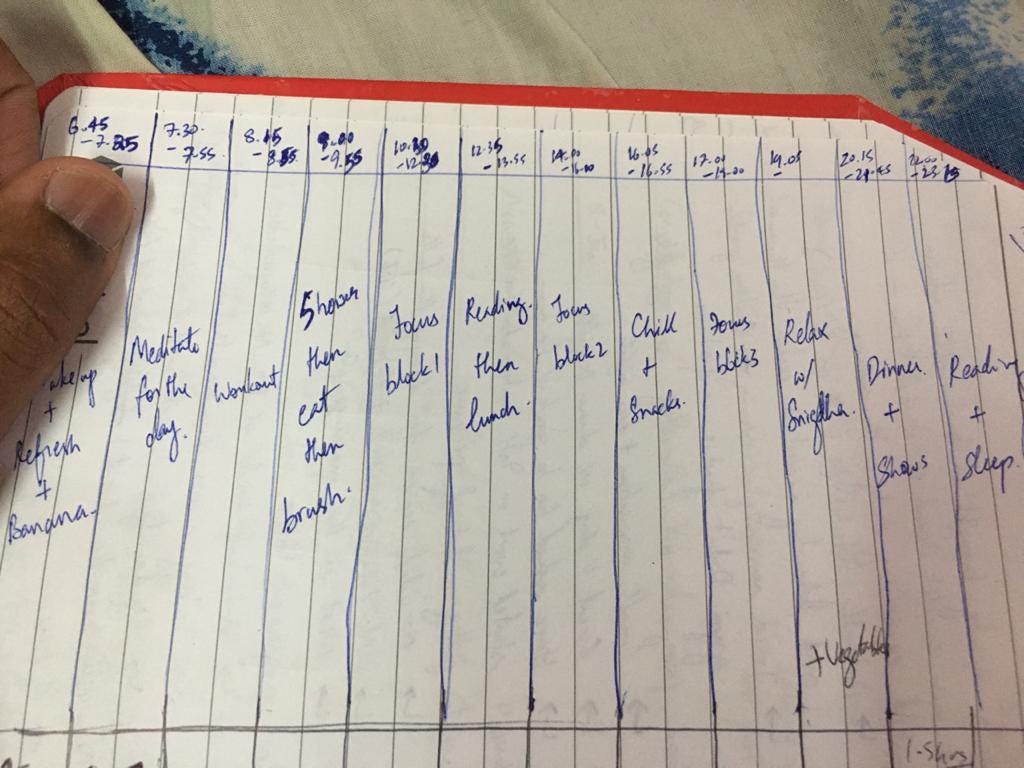 6.45
7.30
- 7.55
8.15
9.00
- 9.55
10.30
12.35
- 13.55
14.00
- 16.00
16.05
- 16.55
17.00
- 19.00
19.05
-
20.15
- 21.45
22.00
ake up
+
Refresh
+
Banana.
Meditate
for the
day.
Workout
Shower
then
eat
then
brush.
Focus
block 1
Reading.
then
lunch.
Focus
block 2
Chill
+
Snacks.
Focus
block 3
Relax
w/
Dinner.
+
Shows
Readin
+
Sleep.
+ Vegetables